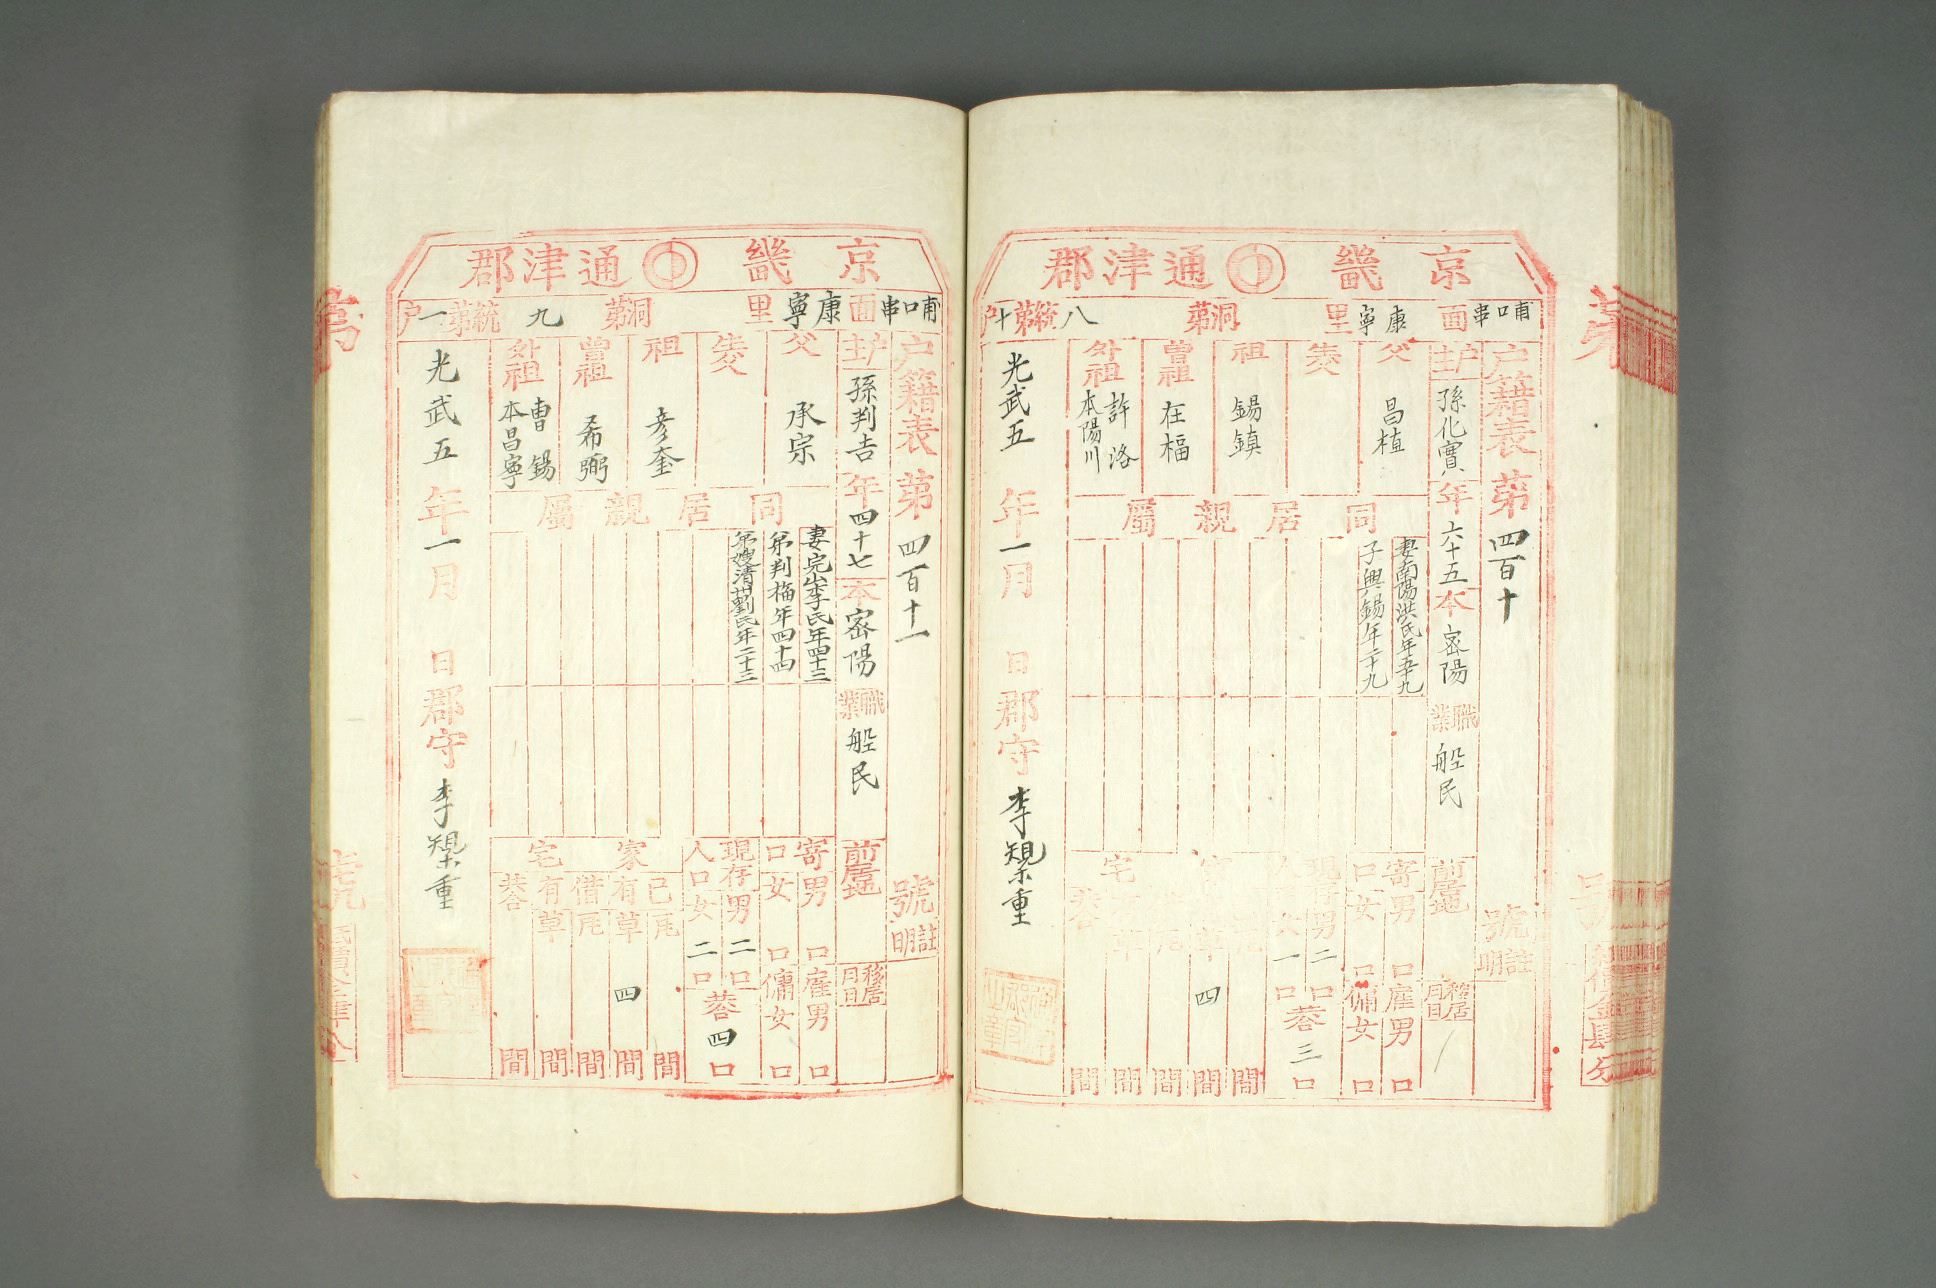 京畿通津郡
哺口串面康寧里洞第八統第十戶
戶籍表第四百十號
註明
戶主孫化實年六十五本密陽職業船民
前居地
移居月日
父昌植
生父
祖錫鎮
曾祖在福
外祖許洛本陽川
同居親屬
妻南陽洪氏年五十九
子興錫年二十九
寄口男口女口
雇男口傭女口
現存人口男二口女一口
葢三口
家宅
四間
間間間間
光武五年一月日郡守李𡮢重
京畿通津郡
哺口串面康寧里洞第九統第一戶
戶籍表第四百十一號
註明
戶主孫判吉年四十七本密陽職業船民
前居地
移居月日
父承宗
生父
祖彥奎
曾祖希弼
外祖曺錫本昌寧
同居親屬
妻完山李氏年四十三
弟判梅年四十四
弟嫂清州劉氏年二十三
寄口男口女口
雇男口傭女口
現存人口男二口女二口
葢四口
家宅
已有瓦間草四間
借有瓦間草間
葢間
光武五年一月日郡守李重